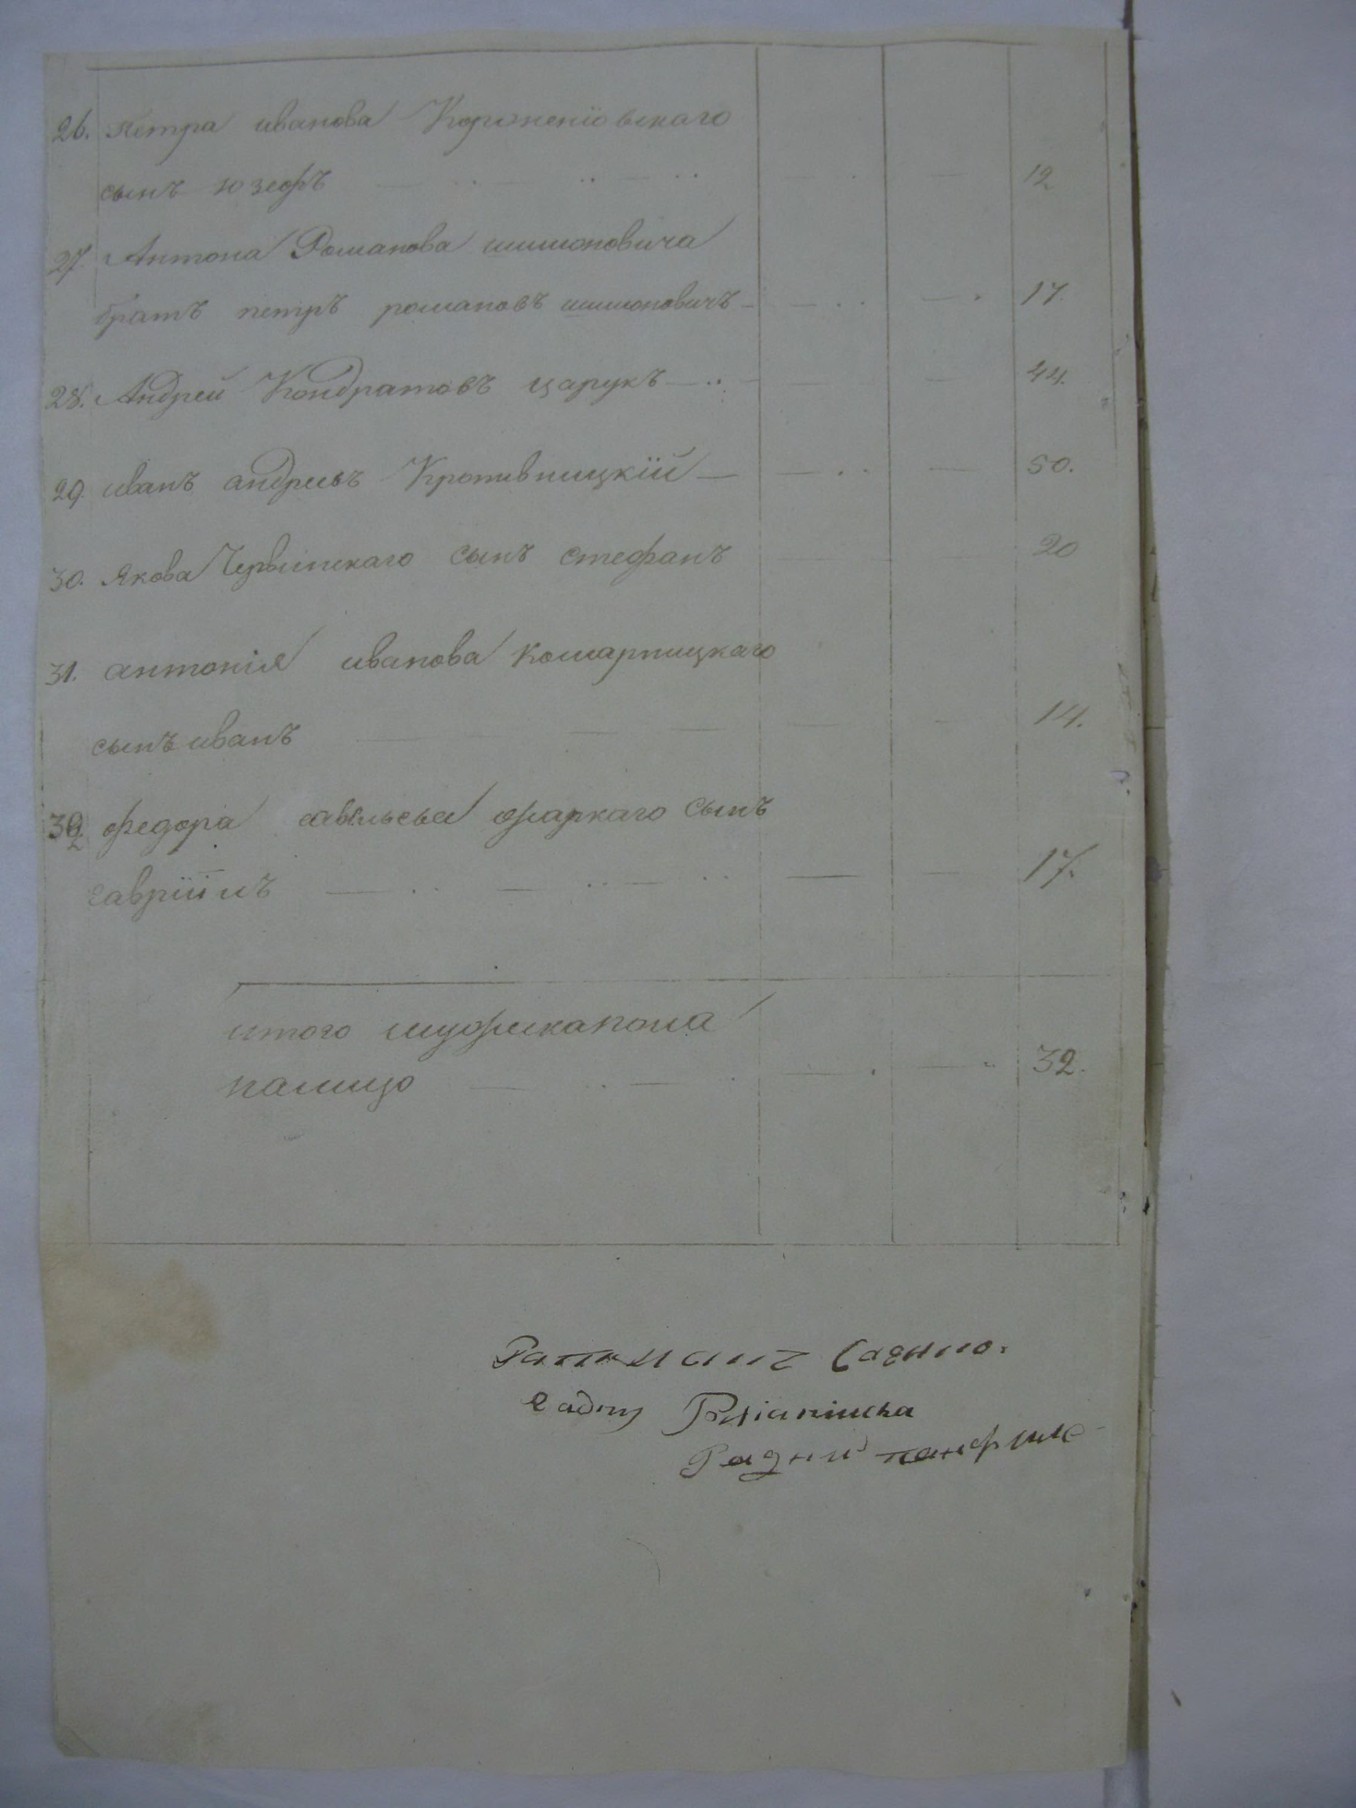 26. петра иванова Корженіовскаго
сынъ юзефъ 12
27. Антона Романова шимоновича
братъ петръ романовъ шимоновичъ 17.
28. Андрей Кондратовъ царукъ 44.
29. иванъ андреевъ Кропивницкій 50.
30. Якова Червинскаго сынъ стефанъ 20
31. антонія иванова комарницкаго
сынъ иванъ 14.
32 федора савельева сынъ
гавріилъ 17.
итого мужскапола
налицо 32.